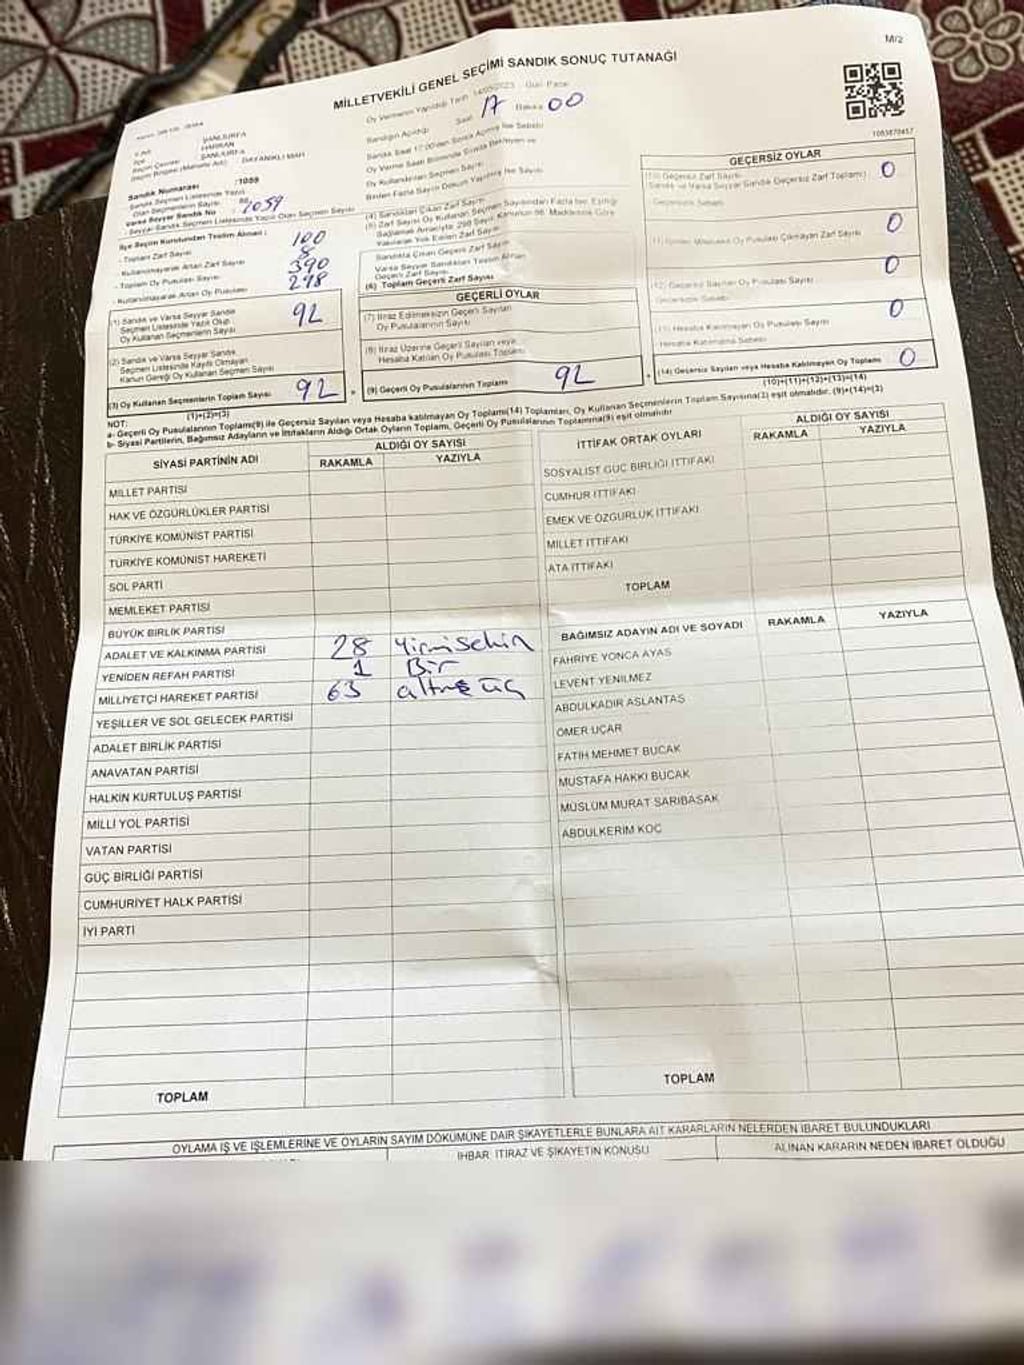 M/2
MİLLETVEKİLİ GENEL SEÇİMİ SANDIK SONUÇ TUTANAĞI
Oy Vermenin Yapıldığı Tarih 14/05/2023 Gün Pazar
Sandığın Açıldığı Saat 17 Dakika 00
1083870457
ŞANLIURFA
HARRAN
ŞANLIURFA
DAYANIKLI MAH
Sandık Numarası : 1059
Sandık Seçmen Listesinde Yazılı
Olan Seçmenlerin Sayısı
Varsa Seyyar Sandık No : 1059
Seyyar Sandık Seçmen Listesinde Yazılı Olan Seçmen Sayısı
İlçe Seçim Kurulundan Teslim Alınan :
- Toplam Zarf Sayısı 100
- Kullanılmayarak Artan Zarf Sayısı 8
- Toplam Oy Pusulası Sayısı 390
- Kullanılmayarak Artan Oy Pusulası 298
(1) Sandık ve Varsa Seyyar Sandık
Seçmen Listesinde Yazılı Olup
Oy Kullanan Seçmenlerin Sayısı 92
(2) Sandık ve Varsa Seyyar Sandık
Seçmen Listesinde Kayıtlı Olmayan
Kanun Gereği Oy Kullanan Seçmen Sayısı
(3) Oy Kullanan Seçmenlerin Toplam Sayısı 92
(1)+(2)=(3)
Sandık Saat 17.00'den Sonra Açılmış İse Sebebi
(4) Sandıktan Çıkan Zarf Sayısı
(5) Zarf Sayısı Oy Kullanan Seçmen Sayısından Fazla İse, Eşitliği
Sağlamak Amacıyla; 298 Sayılı Kanunun 98. Maddesine Göre
Yakılarak Yok Edilen Zarf Sayısı
Sandıkta Çıkan Geçerli Zarf Sayısı
Varsa Seyyar Sandıktan Teslim Alınan
Geçerli Zarf Sayısı
(6) Toplam Geçerli Zarf Sayısı
GEÇERLİ OYLAR
(7) İtiraz Edilmeksizin Geçerli Sayılan
Oy Pusulalarının Sayısı
(8) İtiraz Üzerine Geçerli Sayılan veya
Hesaba Katılan Oy Pusulası Toplamı
(9) Geçerli Oy Pusulalarının Toplamı 92
GEÇERSİZ OYLAR
(10) Geçersiz Zarf Sayısı
(Sandık ve Varsa Seyyar Sandık Geçersiz Zarf Toplamı) 0
Geçersizlik Sebebi
Oy Pusulası Çıkmayan Zarf Sayısı 0
(12) Geçersiz Sayılan Oy Pusulası Sayısı 0
Geçersizlik Sebebi
Hesaba Katılmayan Oy Pusulası Sayısı 0
Hesaba Katılmama Sebebi
(14) Geçersiz Sayılan veya Hesaba Katılmayan Oy Toplamı 0
(10)+(11)+(12)+(13)=(14)
NOT:
a- Geçerli Oy Pusulalarının Toplamı(9) ile Geçersiz Sayılan veya Hesaba katılmayan Oy Toplamı(14) Toplamları, Oy Kullanan Seçmenlerin Toplam Sayısına(3) eşit olmalıdır. (9)+(14)=(3)
b- Siyasi Partilerin, Bağımsız Adayların ve İttifakların Aldığı Ortak Oyların Toplamı, Geçerli Oy Pusulalarının Toplamına(9) eşit olmalıdır
SİYASİ PARTİNİN ADI
ALDIĞI OY SAYISI
RAKAMLA YAZIYLA
MİLLET PARTİSİ
HAK VE ÖZGÜRLÜKLER PARTİSİ
TÜRKİYE KOMÜNİST PARTİSİ
TÜRKİYE KOMÜNİST HAREKETİ
SOL PARTİ
MEMLEKET PARTİSİ
BÜYÜK BİRLİK PARTİSİ
ADALET VE KALKINMA PARTİSİ 28 Yirmisekiz
YENİDEN REFAH PARTİSİ 1 Bir
MİLLİYETÇİ HAREKET PARTİSİ 63 altmış üç
YEŞİLLER VE SOL GELECEK PARTİSİ
ADALET BİRLİK PARTİSİ
ANAVATAN PARTİSİ
HALKIN KURTULUŞ PARTİSİ
MİLLİ YOL PARTİSİ
VATAN PARTİSİ
GÜÇ BİRLİĞİ PARTİSİ
CUMHURİYET HALK PARTİSİ
İYİ PARTİ
TOPLAM
İTTİFAK ORTAK OYLARI
ALDIĞI OY SAYISI
RAKAMLA YAZIYLA
SOSYALİST GÜÇ BİRLİĞİ İTTİFAKI
CUMHUR İTTİFAKI
EMEK VE ÖZGÜRLÜK İTTİFAKI
MİLLET İTTİFAKI
ATA İTTİFAKI
TOPLAM
BAĞIMSIZ ADAYIN ADI VE SOYADI RAKAMLA YAZIYLA
FAHRİYE YONCA AYAS
LEVENT YENİLMEZ
ABDULKADİR ASLANTAŞ
ÖMER UÇAR
FATİH MEHMET BUCAK
MUSTAFA HAKKI BUCAK
MÜSLÜM MURAT SARIBAŞAK
ABDULKERİM KOÇ
TOPLAM
OYLAMA İŞ VE İŞLEMLERİNE VE OYLARIN SAYIM DÖKÜMÜNE DAİR ŞİKAYETLERLE BUNLARA AİT KARARLARIN NELERDEN İBARET BULUNDUKLARI
İHBAR, İTİRAZ VE ŞİKAYETİN KONUSU
ALINAN KARARIN NEDEN İBARET OLDUĞU